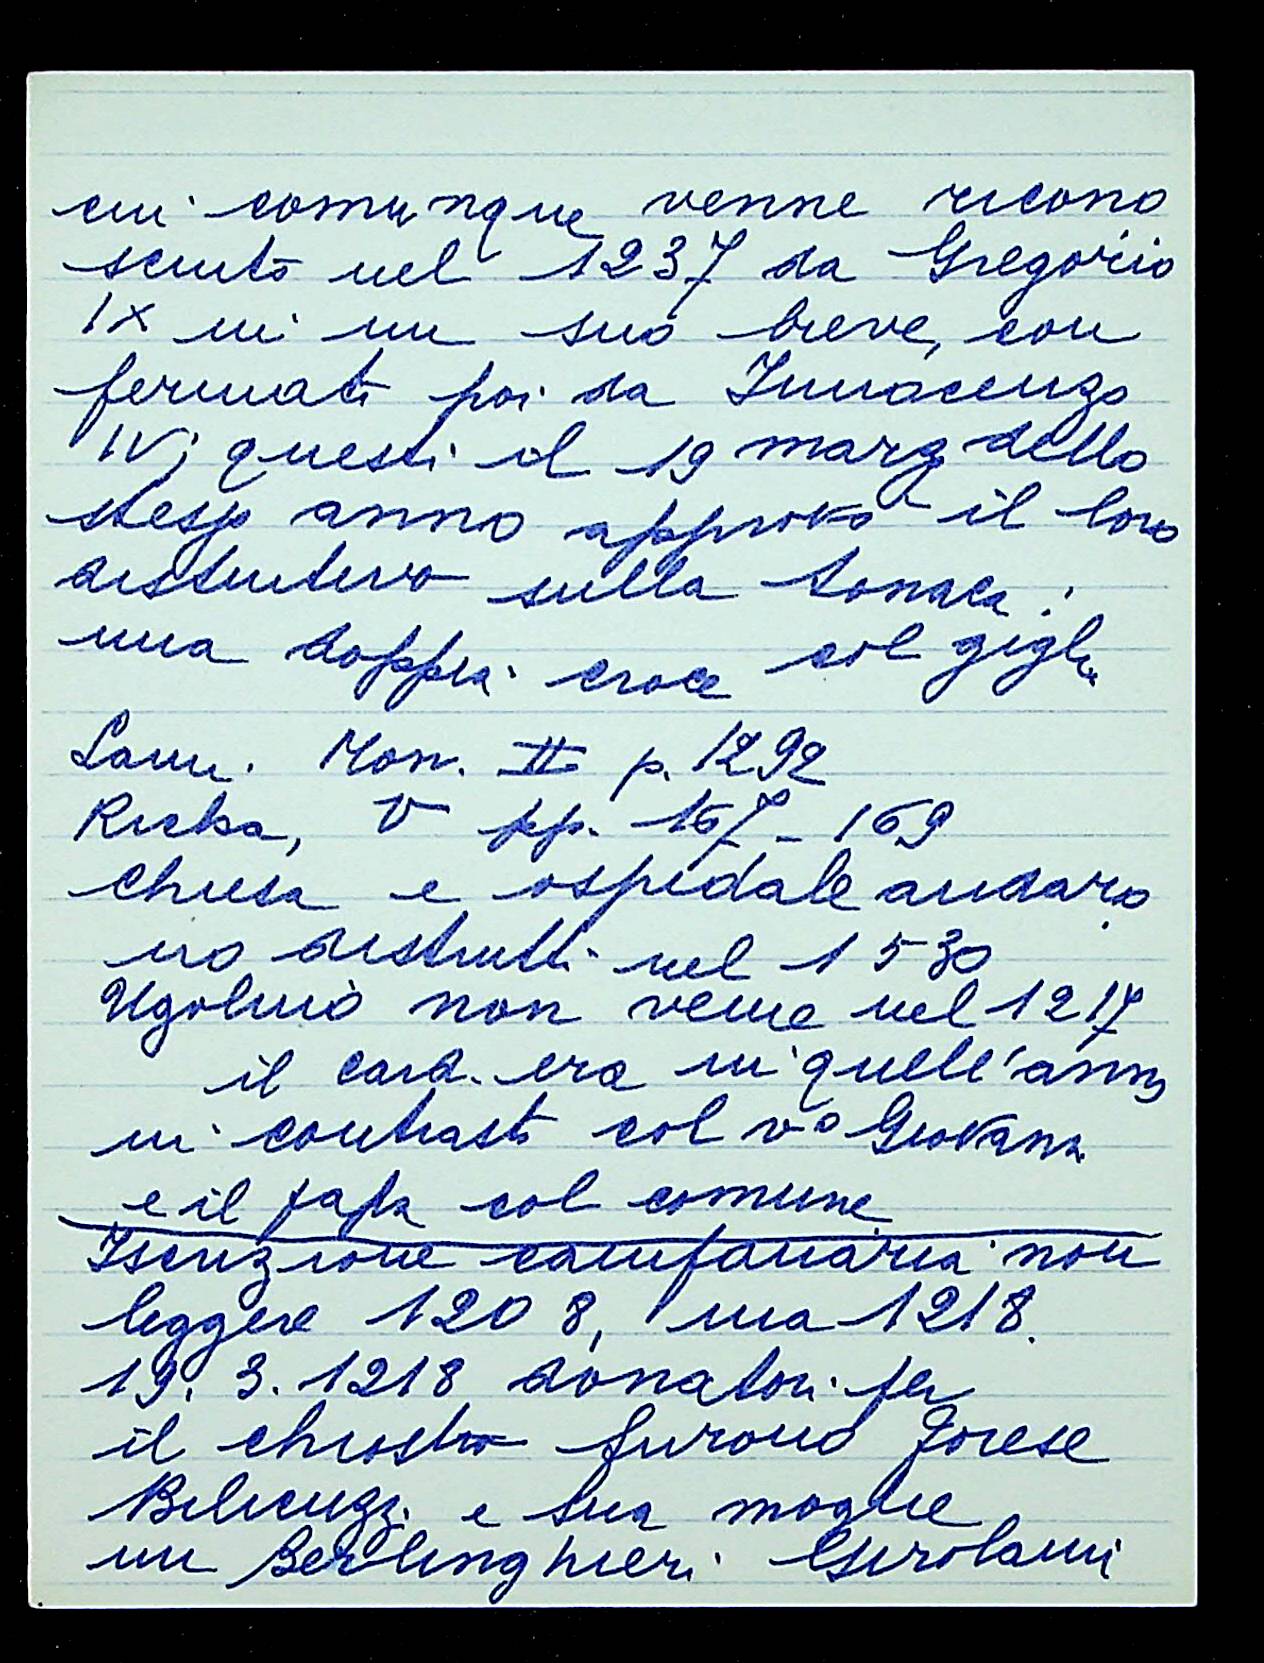 cui comunque venne ricono
sciuto nel 1237 da Gregorio
IX in un suo breve, con
fermato poi da Innocenzo
IV; questi il 19 marzo dello
stesso anno approvò il loro
distintivo sulla tonaca:
una doppia croce col giglio
Lami. Mon. II p. 1292
Richa, V pp. 167-169
Chiesa e ospedale andaro
no distrutti nel 1530
Ugolino non venne nel 1217
il card. era in quell'anno
in contrasto col vo Giovanni
e il papa col comune
Iscrizione campanaria non
leggere 1208, ma 1218.
19.3.1218 donatori per
il chiostro furono Forese
Bilicuzzi e sua moglie
un Berlinghieri Girolami